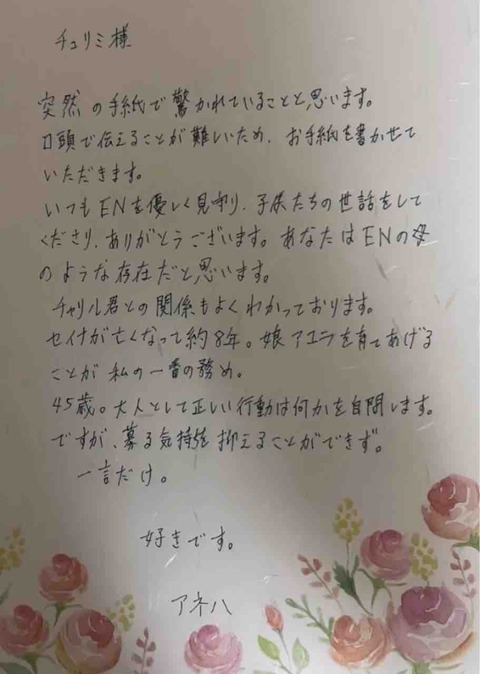 チュリミ様
突然の手紙で驚かれていることと思います。
口頭で伝えることが難しいため、お手紙を書かせて
いただきます。
いつもENを優しく見守り、子供たちの世話をして
くださり、ありがとうございます。あなたはENの母
のような存在だと思います。
チャリル君との関係もよくわかっております。
セイナが亡くなって約8年。娘アユラを育てあげる
ことが私の一番の務め。
45歳。大人として正しい行動は何かを自問します。
ですが、募る気持を抑えることができず。
一言だけ。
好きです。
アネハ